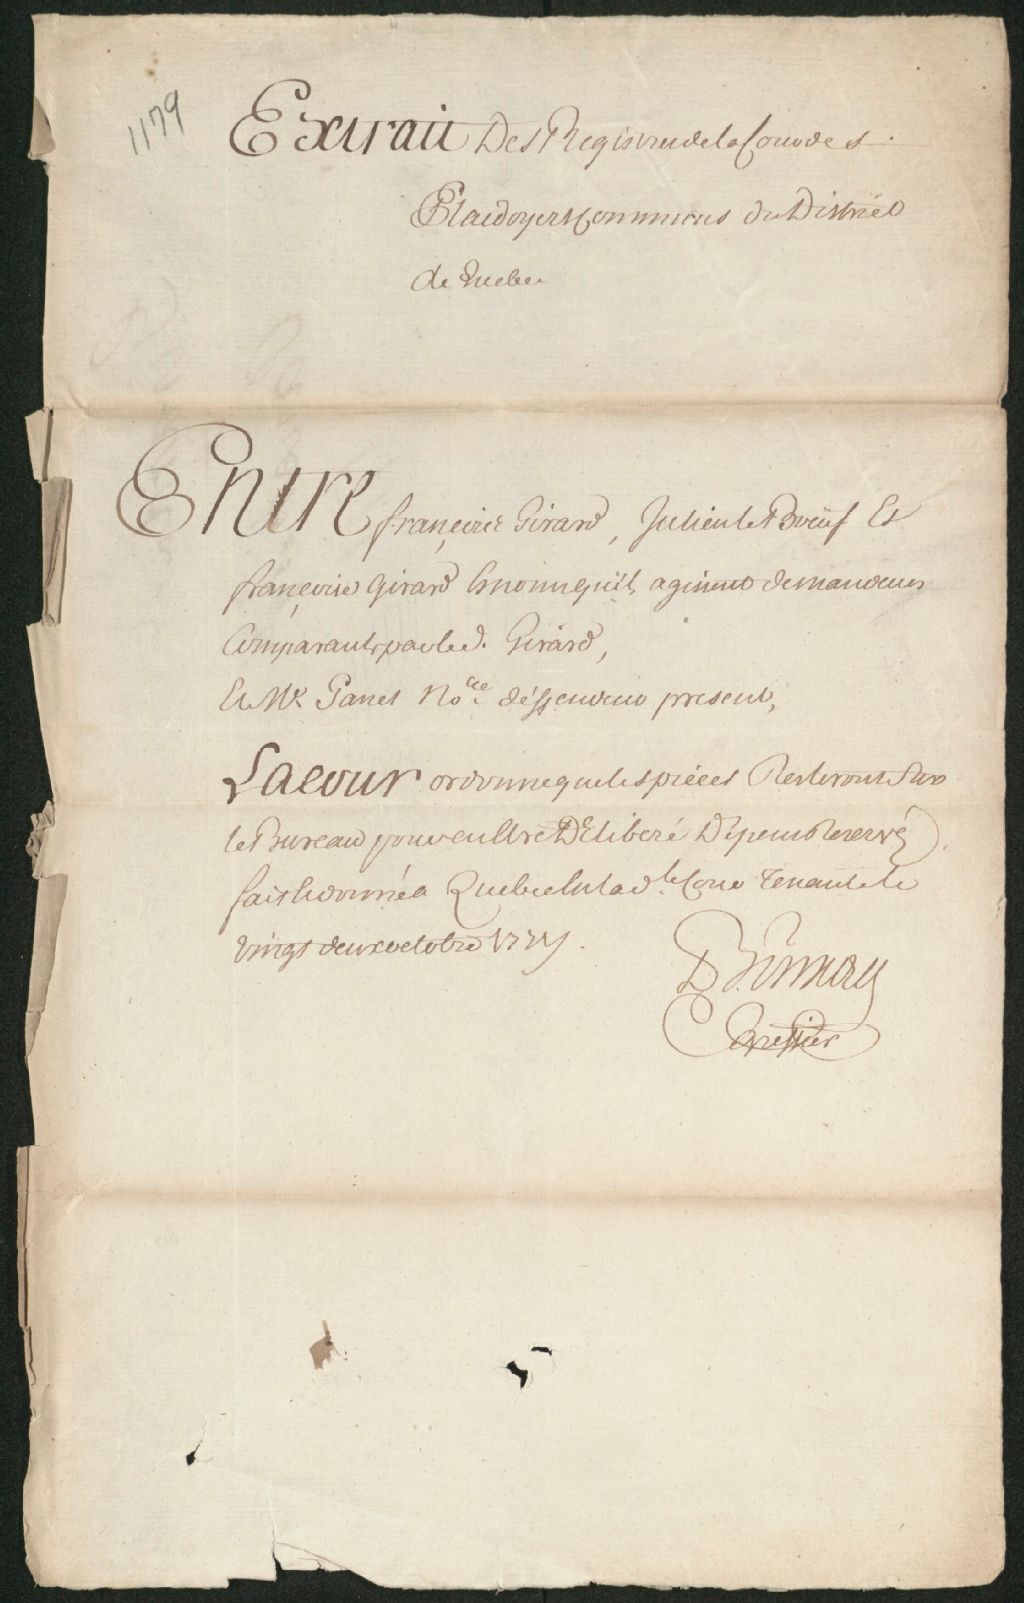 1179
Extrait Des Registres de la Cour des
Plaidoyers Communs du District
de Quebec
Entre françois Girard, Julien le Boeuf Et
françoise Girard Es noms qu'il agissent demandeurs
Comparants par led. Girard,
Et Mr. Panet Nore. déffendeur present,
La Cour ordonne que les pièces Resteront Sur
le Bureau pour en Etre Délibéré Dépens Reservés
fait & donné a Quebec lad. Cour Tenante le
vingt deux octobre
Greffier